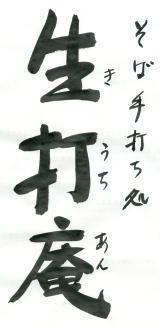 そば手打ち処
生打庵
きうちあん